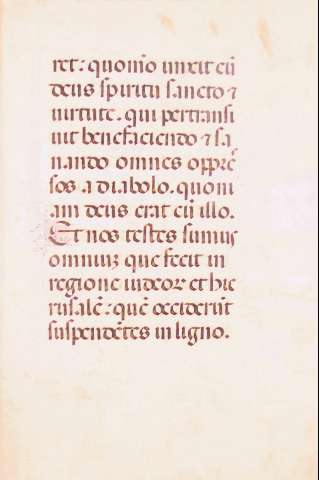 ret: quoniō unxit cū
deus spiritu sancto ⁊
uirtute. qui pertransi
uit benefaciendo ⁊ sa
nando omnes opprē
sos a diabolo. quoni
am deus erat cū illo.
Et nos testes sumus
omniuʒ que fecit in
regione iudeoꝝ et hie
rusalē: quē occiderūt
suspendētes in ligno.